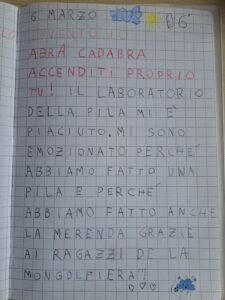 6 MARZO 6°
INVENTO IO
ABRA CADABRA
ACCENDITI PROPRIO
TU! IL LABORATORIO
DELLA PILA MI È
PIACIUTO. MI SONO
EMOZIONATO PERCHE'
ABBIAMO FATTO UNA
PILA E PERCHE'
ABBIAMO FATTO ANCHE
LA MERENDA GRAZIE
AI RAGAZZI DE LA
MONGOLFIERA!!